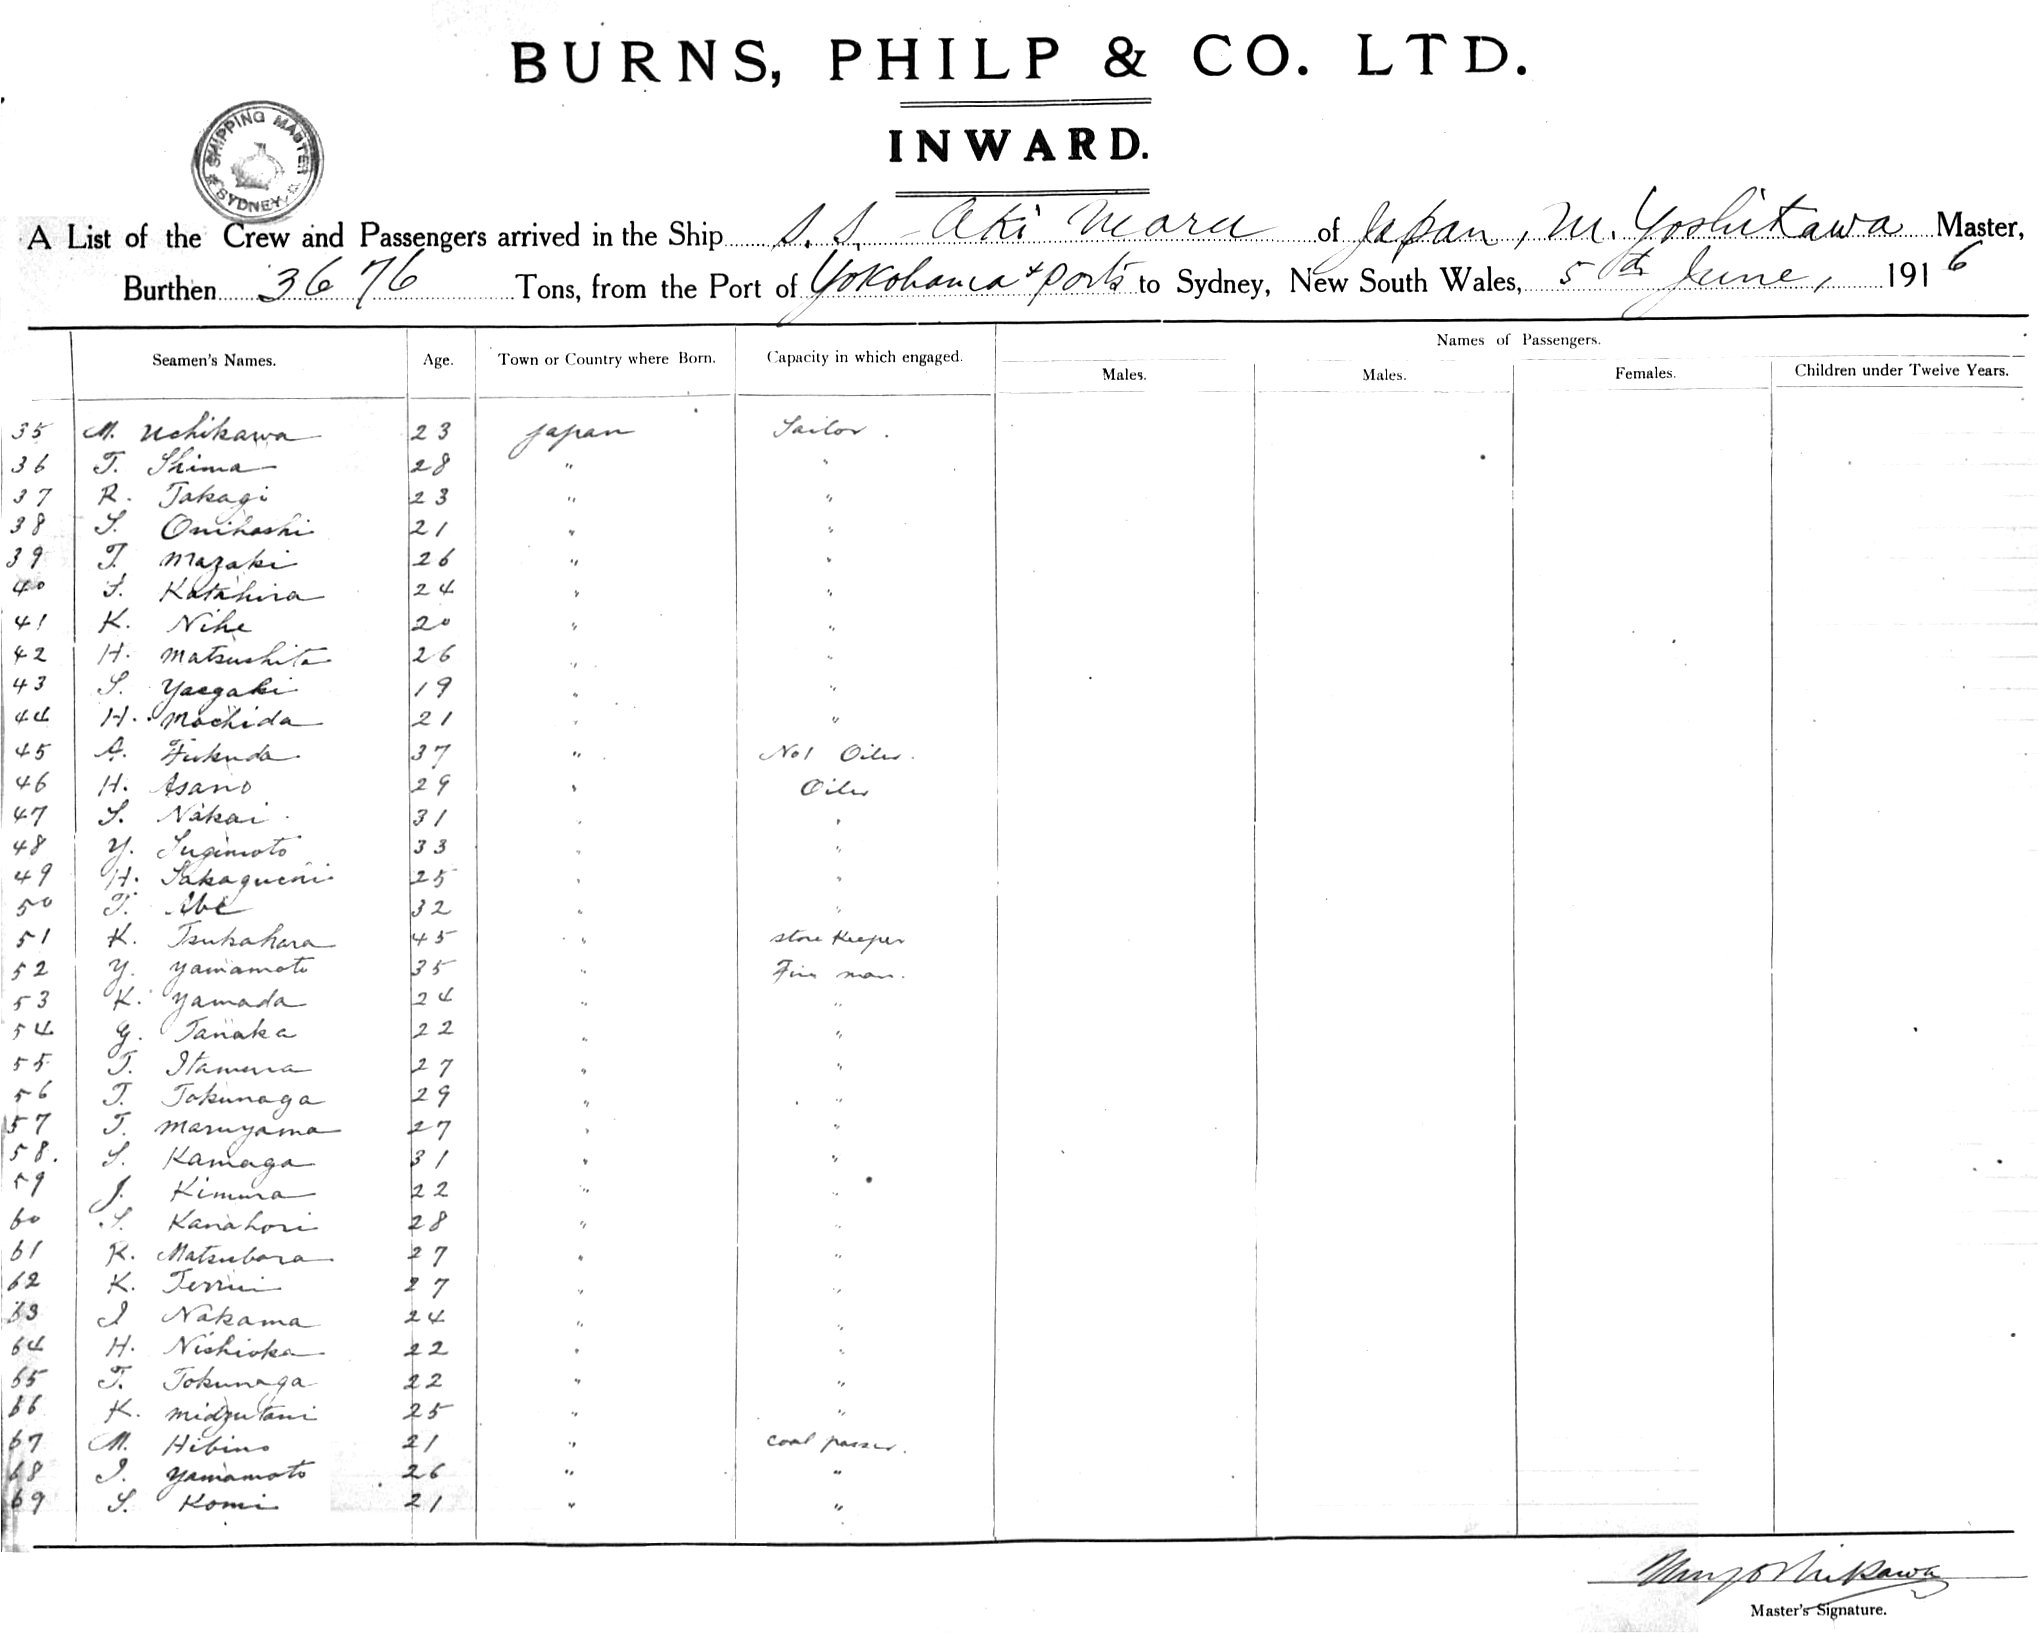 BURNS, PHILP & CO. LTD.
INWARD.
SHIPPING MASTER SYDNEY
A List of the Crew and Passengers arrived in the Ship S.S. Aki Maru of Japan, M. Yoshikawa Master,
Burthen 3676 Tons, from the Port of Yokohama & ports to Sydney, New South Wales, 5th June, 1916
Names of Passengers.
Seamen's Names. Age. Town or Country where Born. Capacity in which engaged. Males. Males. Females. Children under Twelve Years.
35 M. Uchikawa 23 Japan Sailor.
36 T. Shima 28 " "
37 R. Takagi 23 " "
38 S. Onihashi 21 " "
39 T. Mazaki 26 " "
40 S. Katahira 24 " "
41 K. Nihe 20 " "
42 H. Matsushita 26 " "
43 S. Yaegaki 19 " "
44 H. Mochida 21 " "
45 A. Fukuda 37 " No 1 Oiler.
46 H. Asano 29 " Oiler
47 S. Nakai 31 " "
48 Y. Sugimoto 33 " "
49 H. Sakaguchi 25 " "
50 T. Abe 32 " "
51 K. Tsukahara 45 " store Keeper
52 Y. Yamamoto 35 " Fire man.
53 K. Yamada 24 " "
54 G. Tanaka 22 " "
55 T. Itamura 27 " "
56 T. Tokunaga 29 " "
57 T. Maruyama 27 " "
58. S. Kamaga 31 " "
59 J. Kimura 22 " "
60 S. Kanahori 28 " "
61 K. Matsubara 27 " "
62 K. Terui 27 " "
63 I Nakama 24 " "
64 H. Nishioka 22 " "
65 T. Tokunaga 22 " "
66 K. Midzutani 25 " "
67 M. Hibino 21 " coal passer.
68 I. Yamamoto 26 " "
69 S. Komi 21 " "
M Yoshikawa
Master's Signature.